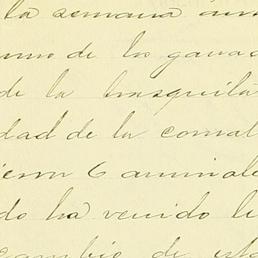 la semana
uno de los ganad
de la trasquila
dad de la comal
ieron 6 animale
do ha venido
cambio de est